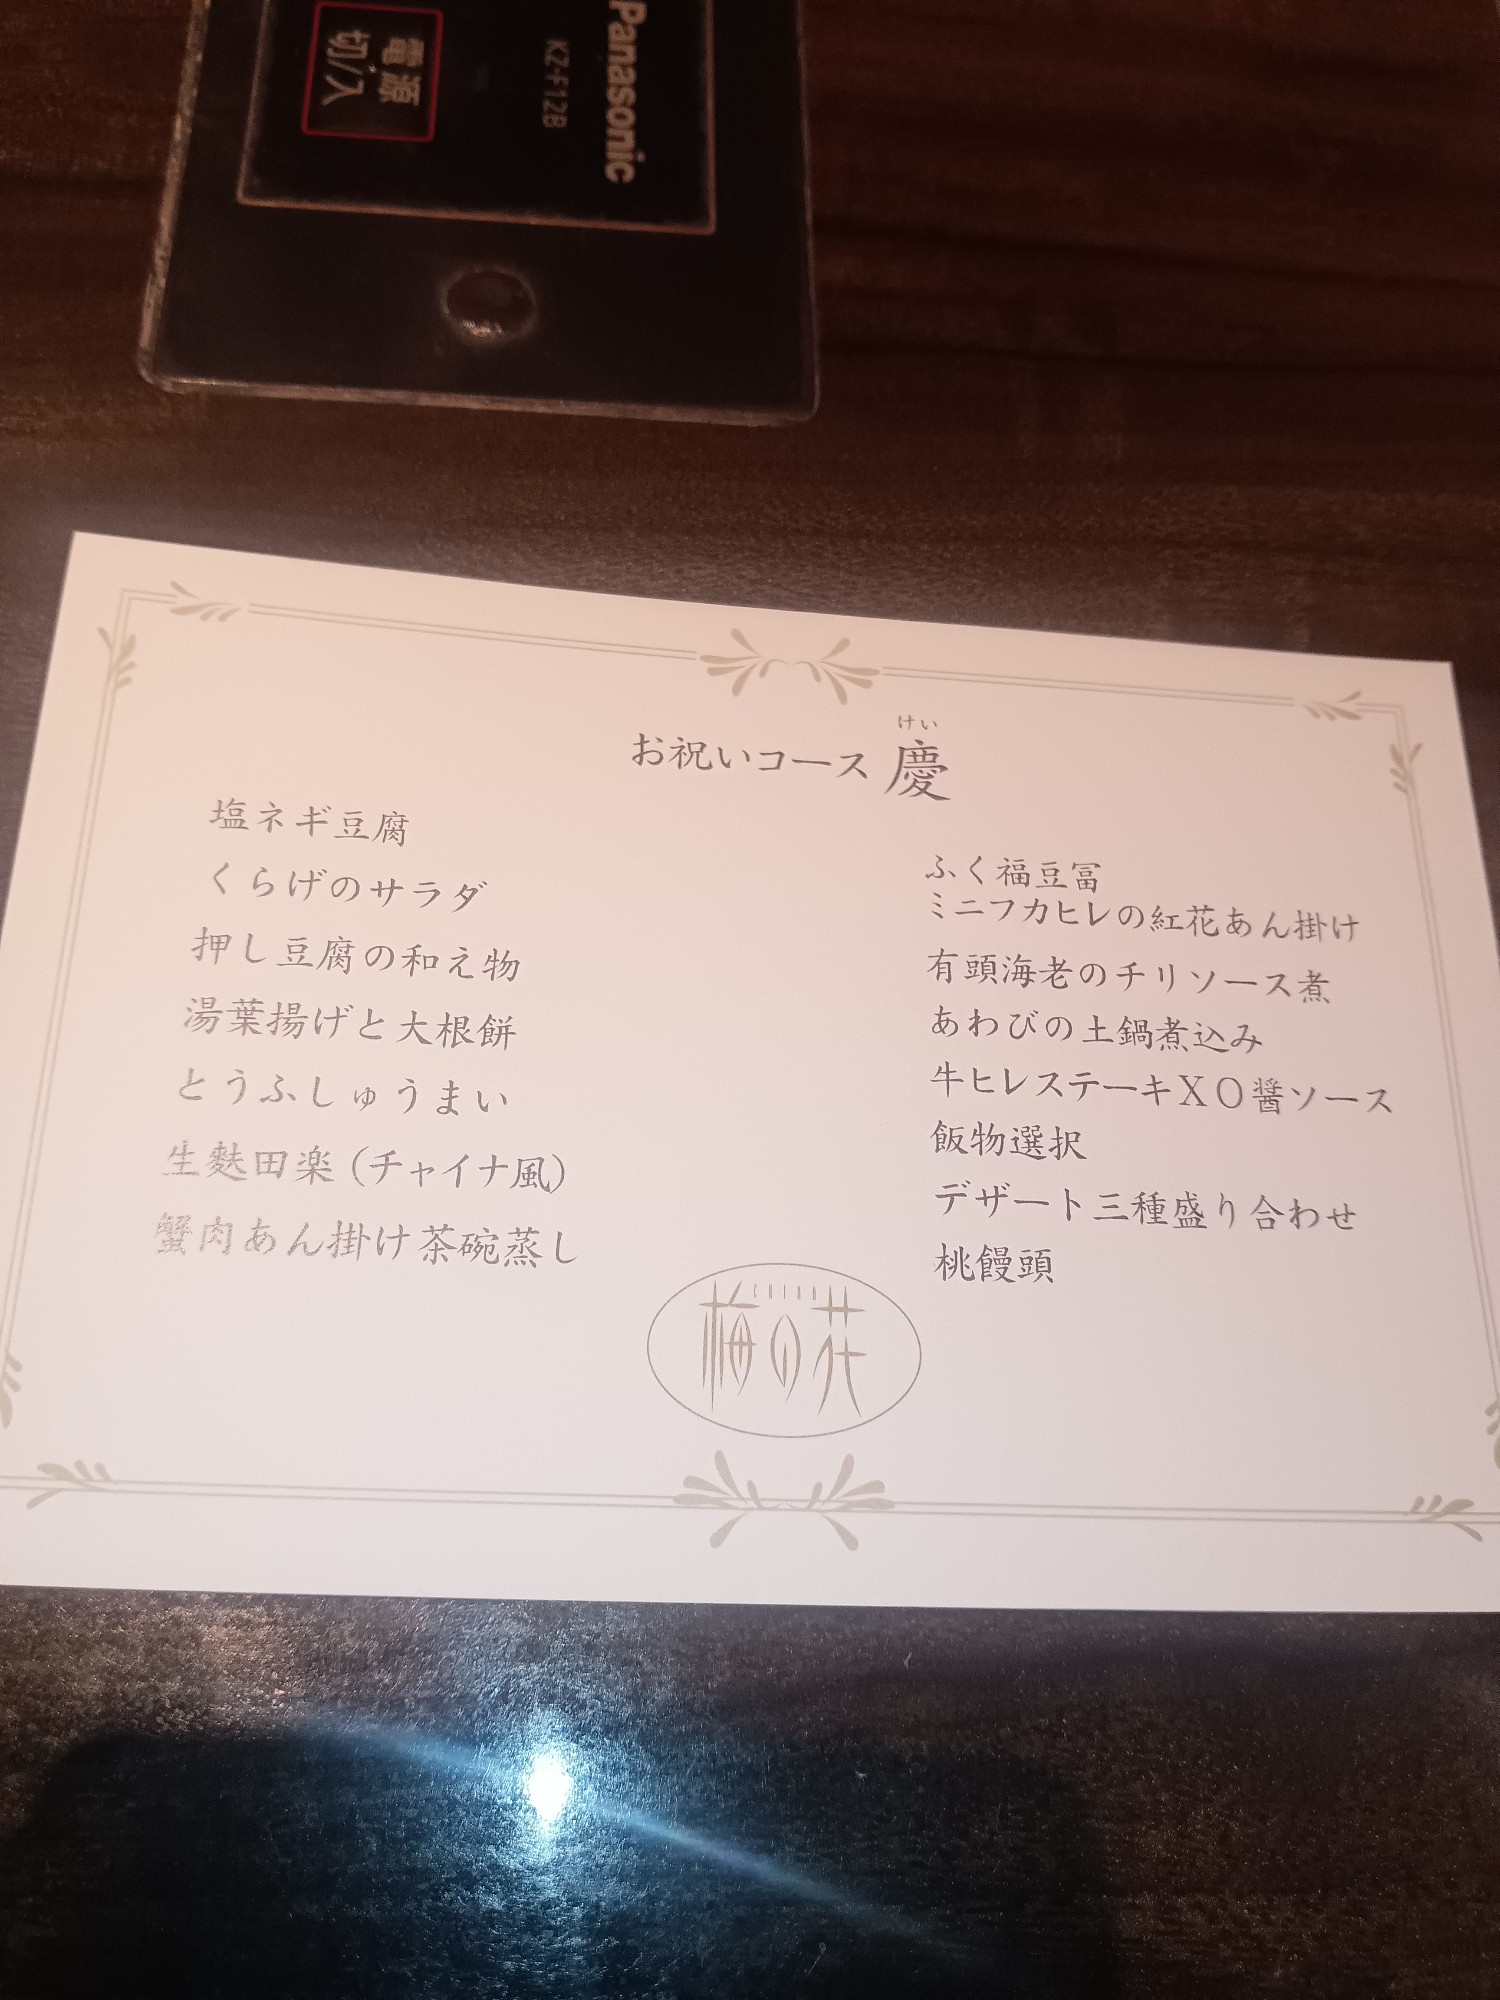 Panasonic
KZ-F12B
電源
切/入
お祝いコース 慶
けい
塩ネギ豆腐
くらげのサラダ
押し豆腐の和え物
湯葉揚げと大根餅
とうふしゅうまい
生麩田楽(チャイナ風)
蟹肉あん掛け茶碗蒸し
ふく福豆冨
ミニフカヒレの紅花あん掛け
有頭海老のチリソース煮
あわびの土鍋煮込み
牛ヒレステーキXO醤ソース
飯物選択
デザート三種盛り合わせ
桃饅頭
CHINA
梅の花